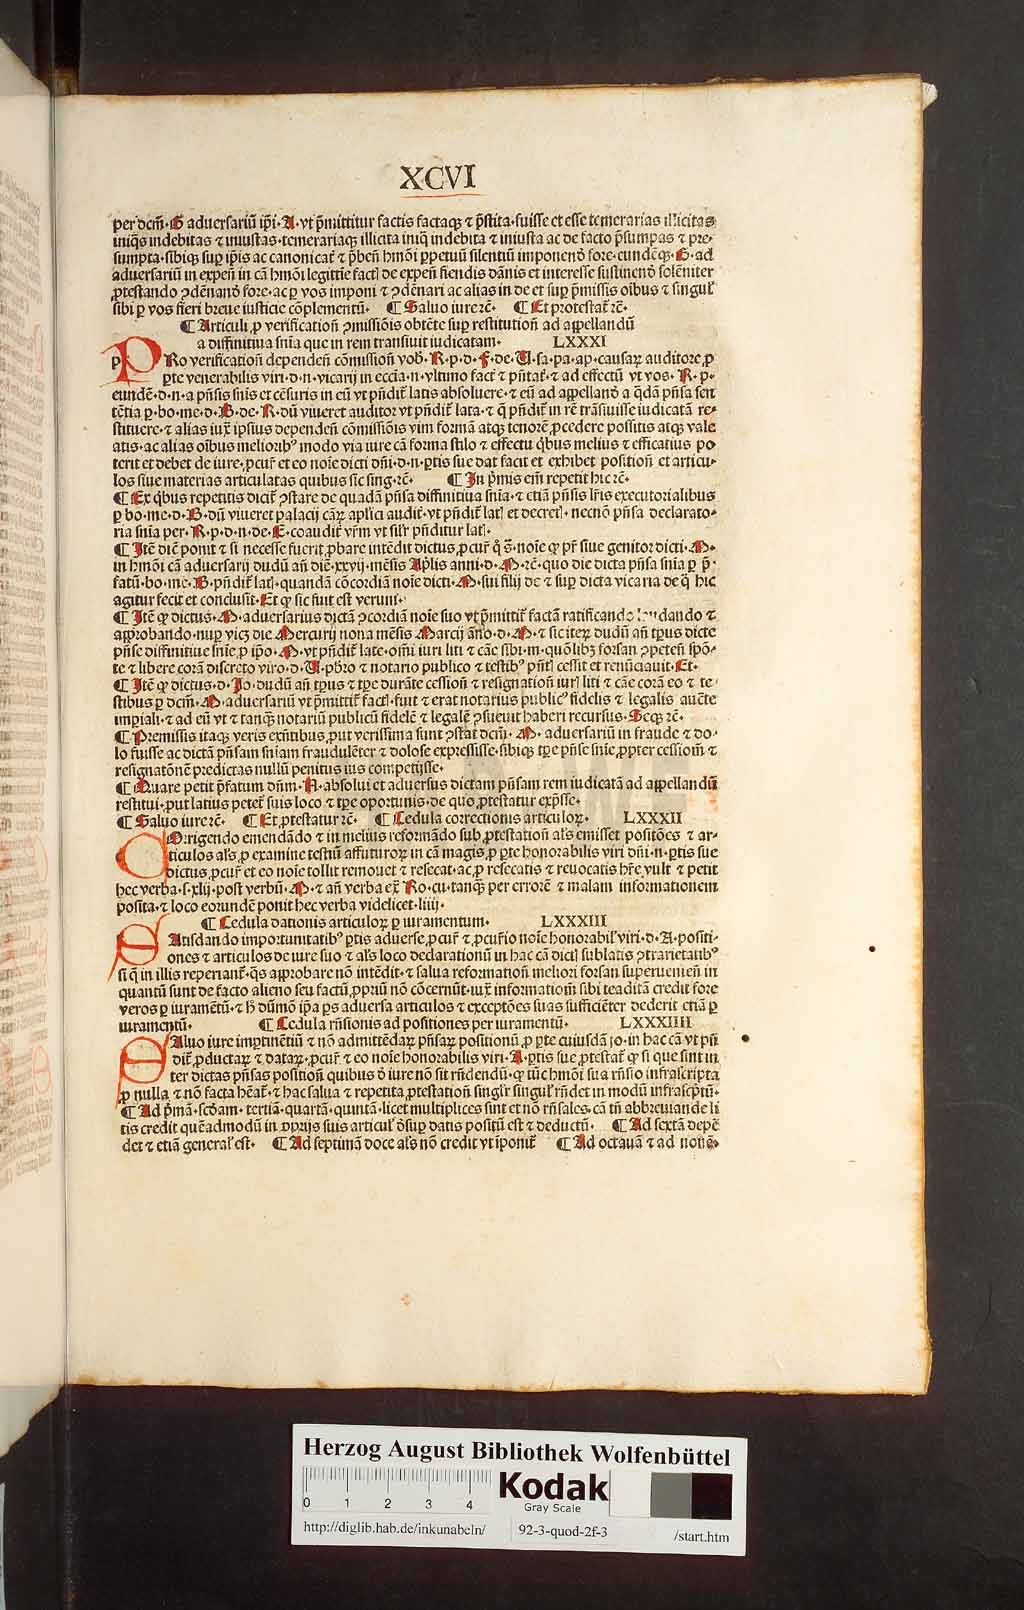 XCVI
per dcm̄·G aduersariū ip̄i·A·vt p̄mittitur factis factaqꝫ ⁊ p̄stita·fuisse et esse temerarias illicitas
iniq̄s indebitas ⁊ iniustas·temerariaqꝫ illicita iniq̄ indebita ⁊ iniusta ac de facto p̄sumpas ⁊ pre⸗
sumpta·sibiqꝫ suꝑ ip̄is ac canonicat̄ ⁊ p̄ben̄ hm̄oi ꝑpetuū silentiū imponen̄ō fore·eundēqꝫ·G·ad
aduersariū in expen̄ in cā hm̄oi legittīe factꝭ de expen̄ fiendis dānis et interesse sustinenō solēniter
ꝓtestando ꝯdēnanō fore·ac ꝑ vos imponi ⁊ ꝯdēnari ac alias in de et suꝑ p̄missis oībus ⁊ singul̄
sibi ꝑ vos fieri breue iusticie cōplementū· ¶ Saluo iure rē· ¶ Et protestat̄ rē·
¶ Articuli ꝓ verification̄ ꝯmissiōis obtēte suꝑ restitution̄ ad appellandū
a diffinitiua sn̄ia que in rem transiuit iudicatam· LXXXI
p Ro verification̄ dependen̄ cōmission̄ vob̄·R·p·d·f·de·U·sa·pa·ap·causaꝝ auditore ꝓ
ꝑte venerabilis viri·d·n·vicarij in eccīa·n·vltimo fact̄ ⁊ pn̄tat̄·⁊ ad effectū vt vos·R·p·
eundē·d·n·a pn̄sis sn̄is et cēsuris in eū vt pn̄dit̄ latis absoluere·⁊ eū ad appellanō a q̄dā pn̄sa sen
tētia ꝑ·bo·me·d·B·de·R·dū viueret auditor vt pn̄dit̄ lata·⁊ q̄ pn̄dit̄ in rē trāsiuisse iudicatā re⸗
stituere·⁊ alias iuꝝ ipsius dependen̄ cōmissiōis vim formā atqꝫ tenorē ꝓcedere possitis atqꝫ vale
atis·ac alias oībus meliorib⁹ modo via iure cā forma stilo ⁊ effectu q̄bus melius ⁊ efficatius po
terit et debet de iure·ꝓcur̄ et eo noīe dicti dn̄i·d·n·ꝑtis sue dat facit et exhibet position̄ et articu⸗
los siue materias articulatas quibus sic sing·rē· ¶ In p̄mis em̄ repetit hic rē·
¶ Ex q̄bus repetitis dicit̄ ꝯstare de quadā pn̄sa diffinitiua sn̄ia·⁊ etiā pn̄sis lr̄is executorialibus
ꝑ bo·me·d·B·dū viueret palacij cāꝝ aplīca audit̄·vt pn̄dit̄ latꝭ et decretꝭ·necnō pn̄sa declarato⸗
ria sn̄ia per·R·p·d·n·de·E·coaudit̄ vr̄m vt silr̄ pn̄ditur latꝭ·
¶ Itē diē ponit ⁊ si necesse fuerit ꝓbare intēdit dictus ꝓcur̄ q̄ ē·noīe ꝙ pr̄ siue genitor dicti·M·
in hm̄oi cā aduersarij dudū an̄ diē·xxvij·mēsis Aplis anni·d·M·rē·quo die dicta pn̄sa sn̄ia ꝑ p̄⸗
fatū·bo·me·B·pn̄dit̄ latꝭ·quandā cōcordiā noīe dicti·M·sui filij de ⁊ suꝑ dicta vicaria de q̄ hic
agitur fecit et conclusit·Et ꝙ sic fuit est verum·
¶ Itē ꝙ dictus·M·aduersarius dictā ꝯcordiā noīe suo vt p̄mittit̄ factā ratificando laudando ⁊
approbando·nuꝑ vicꝫ die Mercurij nona mēsis Marcij ann̄o·d·M·⁊ sic iteꝝ dudū an̄ tꝑus dicte
pn̄se diffinitiue sn̄ie ꝑ ip̄o·M·vt pn̄dit̄ late·oīni iuri liti ⁊ cāe sibi·m·quōlibꝫ forsan ꝯpeten̄ spō⸗
te ⁊ libere corā discreto viro·d·U·pbro ⁊ notario publico ⁊ testib⁹ pn̄tꝭ cessit et renūciauit·Et·
¶ Itē ꝙ dictus·d·Jo·dudū an̄ tꝑus ⁊ tꝑe durāte cession̄ ⁊ resignation̄ iurꝭ liti ⁊ cāe corā eo ⁊ te⸗
stibus ꝑ dcm̄·M·aduersariū vt p̄mittit̄ factꝭ·fuit ⁊ erat notarius public⁹ fidelis ⁊ legalis auc̄te
impiali·⁊ ad eū vt ⁊ tanqꝫ notariū publicū fidelē ⁊ legalē ꝯsueuit haberi recursus·Seqꝫ rē·
¶ Premissis itaqꝫ veris exn̄tibus ꝓut verissima sunt ꝯstat dcm̄·M·aduersariū in fraude ⁊ do⸗
lo fuisse ac dictā pn̄sam sn̄iam fraudulēter ⁊ dolose expressisse·sibiqꝫ tꝑe pn̄se sn̄ie ꝓpter cessiom̄ ⁊
resignatōnē predictas nullū penitus ius competijsse·
¶ Quare petit p̄fatum dn̄m·A·absolui et aduersus dictam pn̄sam rem iudicatā ad appellandū
restitui·ꝓut latius petet̄ suis loco ⁊ tꝑe oportunis·de quo ꝓtestatur exp̄sse·
¶ Saluo iure rē· ¶ Et ꝓtestatur rē· ¶ Cedula correctionis articuloꝝ· LXXXII
COrrigendo emendādo ⁊ in melius reformādo sub ꝓtestation̄ al̄s emisset positōes ⁊ ar⸗
ticulos al̄s ꝓ examine testiū affuturoꝝ in cā magis ꝓ ꝑte honorabilis viri dn̄i·n·ꝑtis sue
dictus ꝓcur̄ et eo noīe tollit remouet ⁊ resecat·ac ꝓ resecatis ⁊ reuocatis hr̄e vult ⁊ petit
hec verba·s·xlij·post verbū·M·⁊ an̄ verba ex̄ Ro·cu·tanqꝫ per errorē ⁊ malam informationem
posita·⁊ loco eorundē ponit hec verba videlicet·liiij·
¶ Cedula dationis articuloꝝ ꝑ iuramentum· LXXXIII
SAtisdando importunitatib⁹ ꝑtis aduerse ꝓcur̄ ⁊ ꝓcur̄io noīe honorabil̄ viri·d·A·positi⸗
ones ⁊ articulos de iure suo ⁊ al̄s loco declarationū in hac cā dictꝭ sublatis ꝯtrarietatib⁹
si q̄ in illis reperiant̄·q̄s approbare nō intēdit·⁊ salua reformation̄ meliori forsan superuenien̄ in
quantū sunt de facto alieno seu factū ꝓpriū nō cōcernūt·iuꝝ informatiom̄ sibi teaditā credit fore
veros ꝑ iuramētū·⁊ hꝫ dūmō ip̄a ps aduersa articulos ⁊ exceptōes suas sufficiēter dederit etiā ꝑ
iuramentū· ¶ Cedula rn̄sionis ad positiones per iuramentū· LXXXIIII
SAluo iure imꝑtinētiū ⁊ nō admittēdaꝝ pn̄saꝝ positionū ꝓ ꝑte cuiusdā jo·in hac cā vt pn̄
dit̄ ꝓductaꝝ ⁊ dataꝝ ꝓcur̄ ⁊ eo noīe honorabilis viri·A·ꝑtis sue ꝓtestat̄ ꝙ si que sint in
ter dictas pn̄sas position̄ quibus ō iure nō sit rn̄dendū·ꝙ tūc hm̄oi sua rn̄sio infrascripta
ꝓ nulla ⁊ nō facta hēat̄·⁊ hac salua ⁊ repetita ꝓtestation̄ singlr̄ singul̄ rn̄det in modū infrasc̄ptū·
¶ Ad p̄mā·scd̄am·tertiā·quartā·quintā·licet multiplices sint et nō rn̄sales·cā tn̄ abbreuiande li
tis credit quēadmodū in ꝓprijs suis articul̄ ōsuꝑ datis positū est ⁊ deductū· ¶ Ad sextā depē
det ⁊ etiā general̄ est· ¶ Ad septimā doce al̄s nō credit vt īponit̄ ¶ Ad octauā ⁊ ad nonā⸗
Herzog August Bibliothek Wolfenbüttel
0 1 2 3 4
Kodak
Gray Scale
http://diglib.hab.de/inkunabeln/ 92-3-quod-2f-3 /start.htm